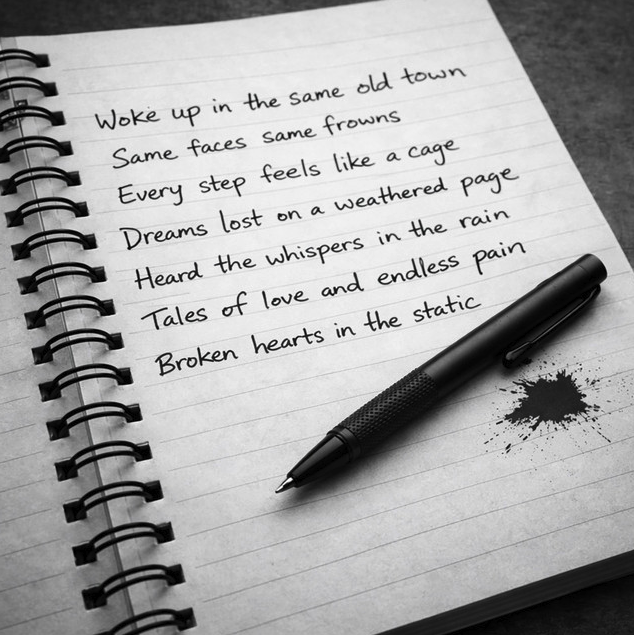 Woke up in the same old town
Same faces same frowns
Every step feels like a cage
Dreams lost on a weathered page
Heard the whispers in the rain
Tales of love and endless pain
Broken hearts in the static